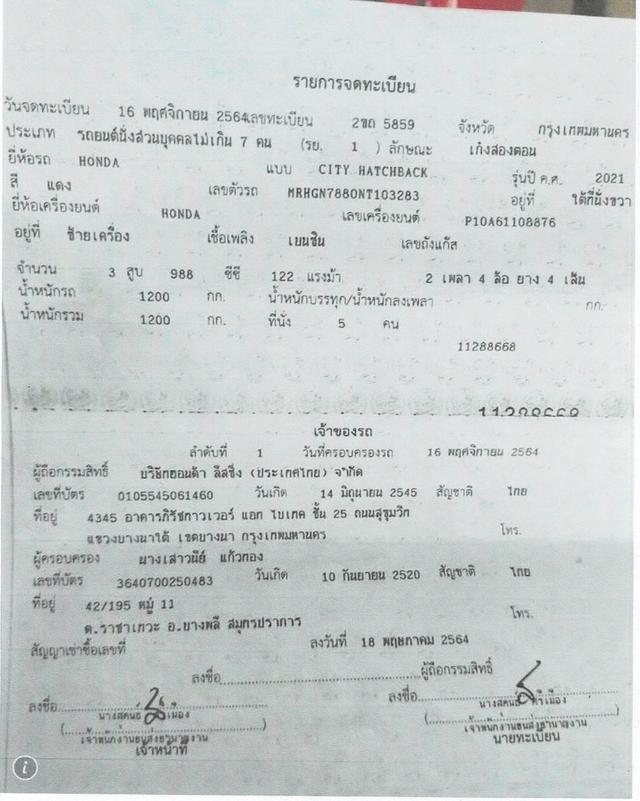 รายการจดทะเบียน
วันจดทะเบียน 16 พฤศจิกายน 2564 เลขทะเบียน 2ขถ 5859 จังหวัด กรุงเทพมหานคร
ประเภท รถยนต์นั่งส่วนบุคคลไม่เกิน 7 คน (รย. 1 ) ลักษณะ เก๋งสองตอน
ยี่ห้อรถ HONDA แบบ CITY HATCHBACK รุ่นปี ค.ศ. 2021
สี แดง เลขตัวรถ MRHGN7880NT103283 อยู่ที่ ใต้ที่นั่งขวา
ยี่ห้อเครื่องยนต์ HONDA เลขเครื่องยนต์ P10A61108876
อยู่ที่ ซ้ายเครื่อง เชื้อเพลิง เบนซิน เลขถังแก๊ส
จำนวน 3 สูบ 988 ซีซี 122 แรงม้า 2 เพลา 4 ล้อ ยาง 4 เส้น
น้ำหนักรถ 1200 กก. น้ำหนักบรรทุก/น้ำหนักลงเพลา กก.
น้ำหนักรวม 1200 กก. ที่นั่ง 5 คน
11288668
11288668
เจ้าของรถ
ลำดับที่ 1 วันที่ครอบครองรถ 16 พฤศจิกายน 2564
ผู้ถือกรรมสิทธิ์ บริษัทฮอนด้า ลีสซิ่ง (ประเทศไทย) จำกัด
เลขที่บัตร 0105545061460 วันเกิด 14 มิถุนายน 2545 สัญชาติ ไทย
ที่อยู่ 4345 อาคารภิรัชทาวเวอร์ แอท ไบเทค ชั้น 25 ถนนสุขุมวิท
แขวงบางนาใต้ เขตบางนา กรุงเทพมหานคร โทร.
ผู้ครอบครอง นางเสาวนีย์ แก้วทอง
เลขที่บัตร 3640700250483 วันเกิด 10 กันยายน 2520 สัญชาติ ไทย
ที่อยู่ 42/195 หมู่ 11
ต.ราชาเทวะ อ.บางพลี สมุทรปราการ โทร.
สัญญาเช่าซื้อเลขที่ ลงวันที่ 18 พฤษภาคม 2564
ลงชื่อ ผู้ถือกรรมสิทธิ์
ลงชื่อ ลงชื่อ
เจ้าพนักงานขนส่งชำนาญงาน เจ้าพนักงานขนส่งชำนาญงาน
เจ้าหน้าที่ นายทะเบียน